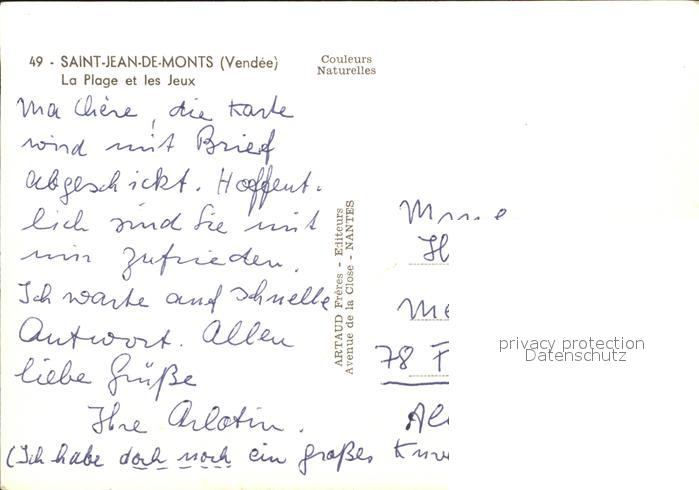 49 - SAINT-JEAN-DE-MONTS (Vendée)
La Plage et les Jeux
Couleurs
Naturelles
Ma Chère, die Karte
wird mit Brief
abgeschickt. Hoffent-
lich sind Sie mit
mir zufrieden.
Ich warte auf schnelle
Antwort. Allen
liebe Grüße
Ihre Arlotin.
(Ich habe doch noch ein großes
ARTAUD Frères - Editeurs
Avenue de la Close - NANTES
H
Me
78 F
Al
privacy protection
Datenschutz